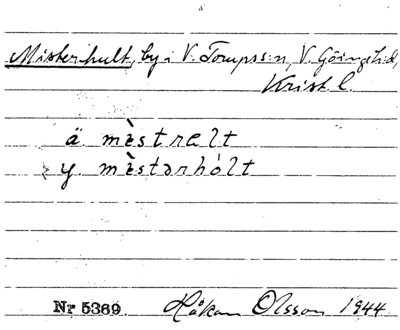 Misterhult, by i V. Torups s:n, V. Göinge hd,
Krist l.
ä. mèstrælt
y. mèstərhólt
Nr 5369 Håkan Olsson 1944